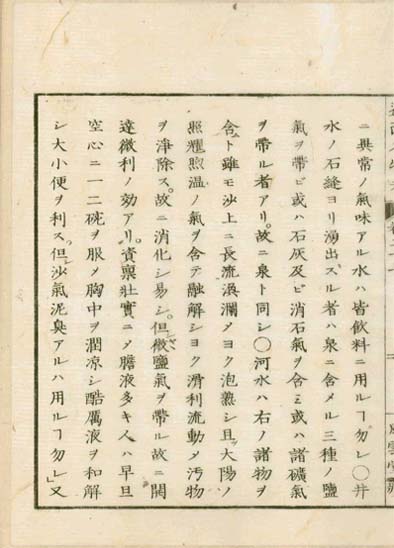 ニ異常ノ氣味アル水ハ皆飲料ニ用ルヿ勿レ〇井
水ノ石縫ヨリ湧出スル者ハ泉ニ含メル三種ノ鹽
氣ヲ帶ビ或ハ石灰及ビ消石氣ヲ含ミ或ハ諸礦氣
ヲ帶ル者アリ故ニ泉ト同シ〇河水ハ右ノ諸物ヲ
含ト雖モ沙上ニ長流漢瀾メヨク泡熟シ且ツ大陽ノ
照耀煦温ノ氣ヲ含テ融解シヨク滑利流動メ汚物
ヲ淨除ス故ニ消化シ易シ但微鹽氣ヲ帶ル故ニ開
達微利ノ効アリ資禀壯實ニメ膽液多キ人ハ早旦
空心ニ一二碗ヲ服メ胸中ヲ潤凉シ酷厲液ヲ和解
シ大小便ヲ利ス但沙氣泥臭アルハ用ルヿ勿レ」又